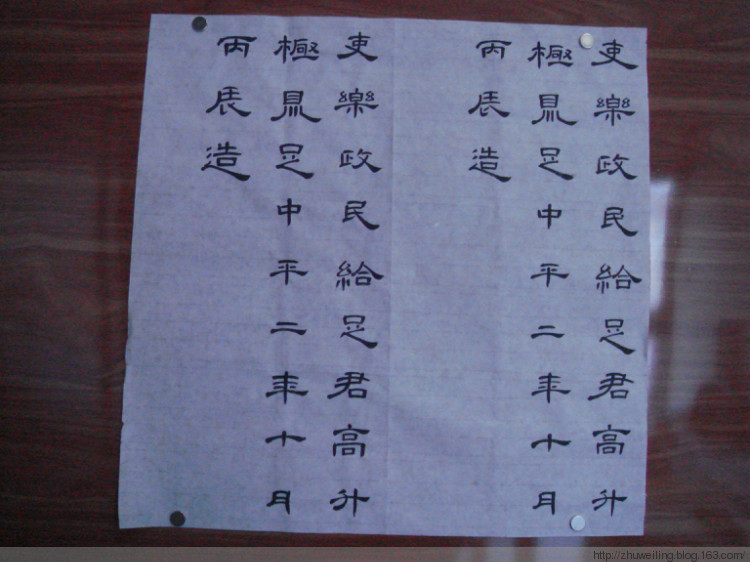 吏樂政民給足君高升
極鼎足中平二年十月
丙辰造
吏樂政民給足君高升
極鼎足中平二年十月
丙辰造
http://zhuweiling.blog.163.com/